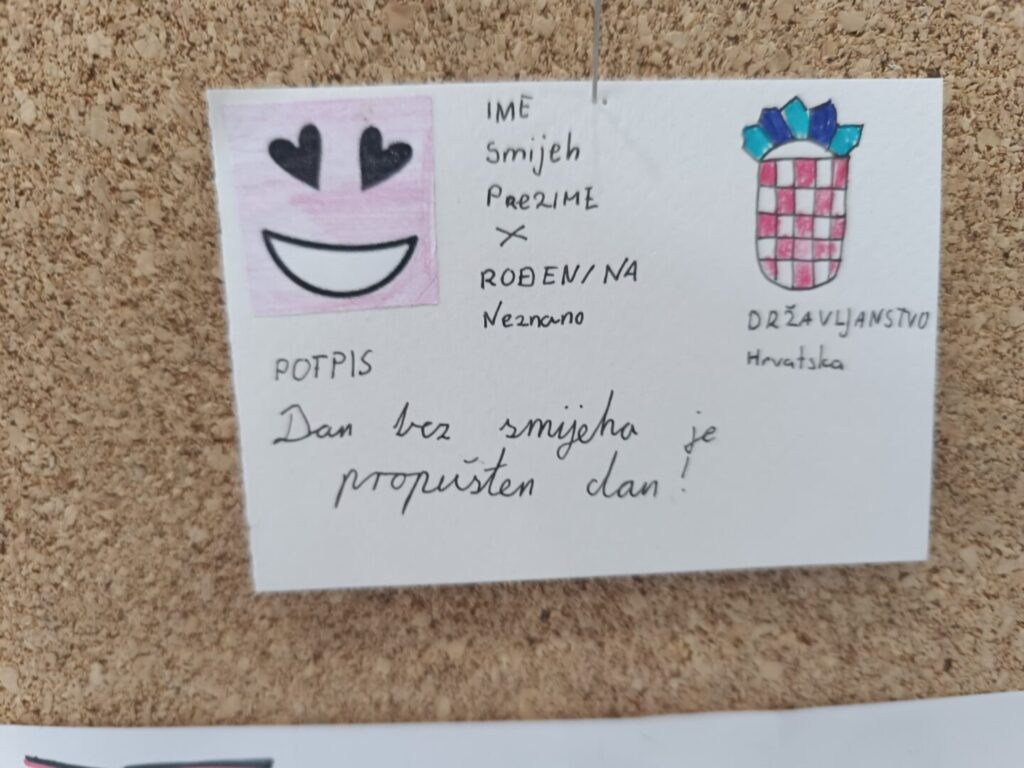 IME
Smijeh
PREZIME
X
ROĐEN/NA
Neznano
DRŽAVLJANSTVO
Hrvatska
POTPIS
Dan bez smijeha je
propušten dan!